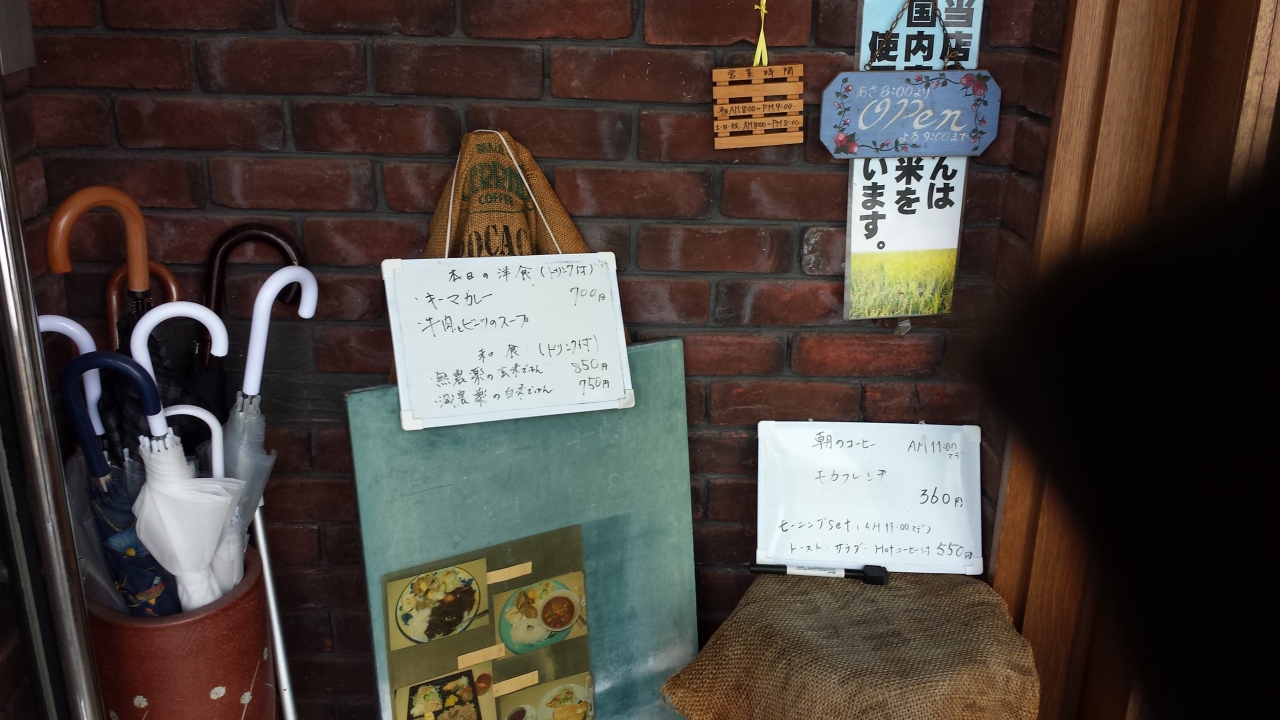 営業時間
AM8:00~PM9:00
土・日・祝 AM8:00~PM8:00
当店
国内
使
んは
米を
います。
あさ8:00より
OPen
よる9:00まで
COFFEE
本日の洋食(ドリンク付)
・キーマカレー 700円
・牛肉とビーンツのスープ
和食(ドリンク付)
無農薬の玄米ごはん 850円
減農薬の白米ごはん 750円
朝のコーヒー AM11:00マデ
モカフレンチ
360円
モーニングset(AM11:00マデ)
トースト・サラダ・Hotコーヒー付 550円